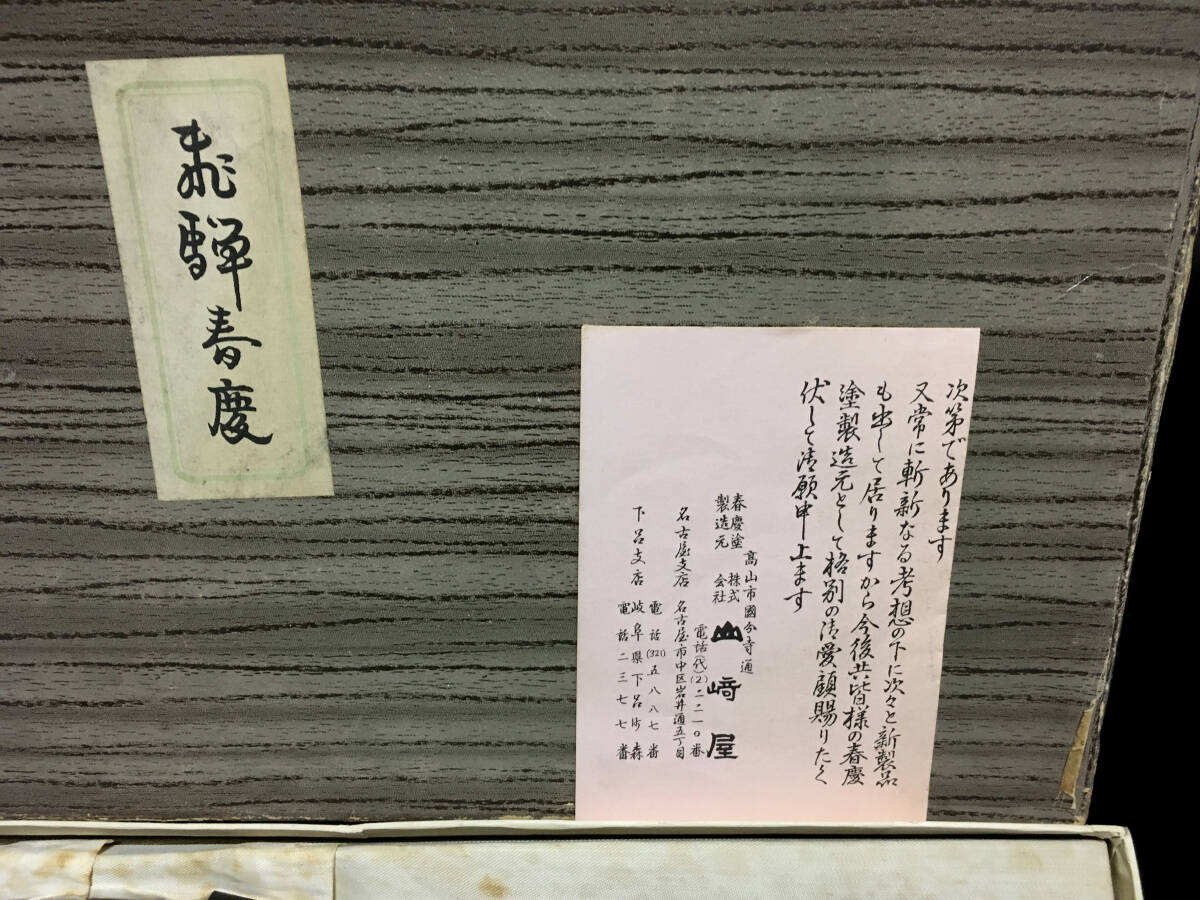 飛騨春慶
次第であります
又常に斬新なる考想の下に次々と新製品
も出して居りますから今後共皆様の春慶
塗製造元として格別の御愛顧賜りたく
伏して御願申上ます
高山市國分寺通
春慶塗製造元 株式会社 山﨑屋
電話(代)(2)二二一〇番
名古屋支店 名古屋市中区岩井通五丁目
電話(321)五八八七番
下呂支店 岐阜県下呂町森
電話二三七七番